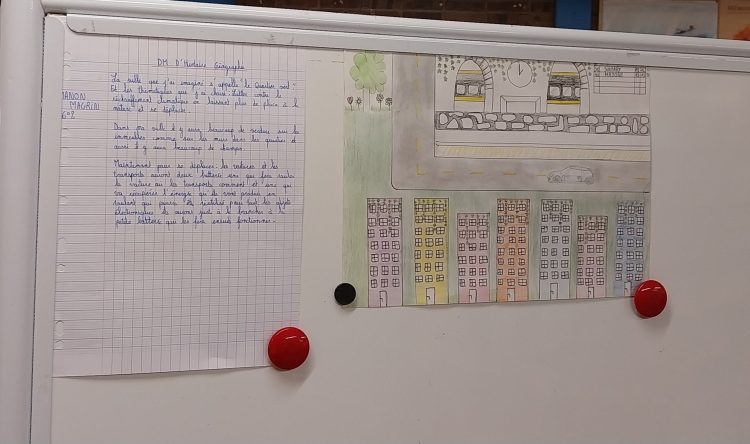 DM D'Histoire Géographie
MANON
MAGRINI
602
La ville que j'ai imaginé s'appelle "le Quartier vert".
Et les thématiques que j'ai choisi: Lutter contre le
réchauffement climatique en laissant plus de place à la
nature et se déplacer.
Dans ma ville il y aura beaucoup de verdure sur les
immeubles comme sur les murs dans les quartiers et
aussi il y aura beaucoup de champs.
Maintenant pour se déplacer les voitures et les
transports auront deux batteries une qui fera rouler
la voiture ou les transports comment et une qui
va récupérer l'énergie qu'ils vont produire en
roulant qui pourra être réutilisé pour tout les objets
électroniques ils auront juste à le brancher à la
petite batterie qui les fera ensuite fonctionner.